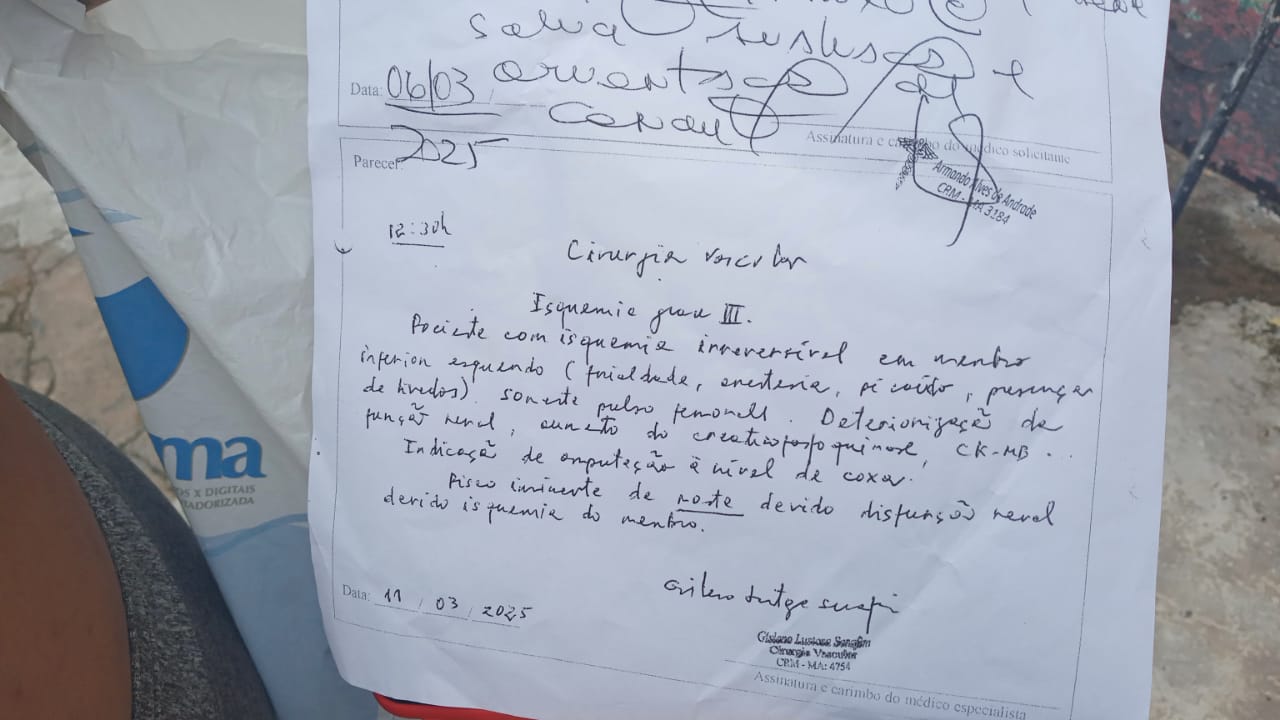 salva
orientação de
Data: 06/03
conduta
2025
Assinatura e carimbo do médico solicitante
Parecer:
Armando Alves de Andrade
CRM - MA 3184
12:30h
Cirurgia vascular
Isquemia grau III.
Paciente com isquemia irreversível em membro
inferior esquerdo (frialdade, anestesia, pé caído, presença
de livedos). Somente pulso femoral. Deteriorização da
função renal, aumento do creatinofosfoquinase, CK-MB...
Indicação de amputação à nível de coxa.
Risco iminente de morte devido disfunção renal
devido isquemia do membro.
Data: 11 / 03 / 2025
Gislano Lustosa Serafim
Cirurgia Vascular
CRM - MA: 4754
Assinatura e carimbo do médico especialista
ma
OS X DIGITAIS
ADORIZADA